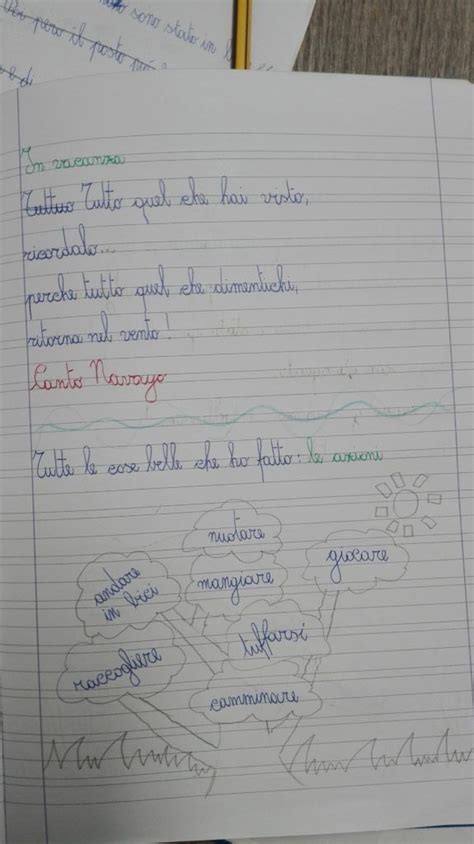 sono stato in
però il posto
In vacanza
Tuttuo Tutto quel che hai visto,
ricordalo...
perche tutto quel che dimentichi,
ritorna nel vento!
Canto Navayo
Tutte le cose belle che ho fatto: le azioni
nuotare
giocare
andare
in bici
mangiare
tuffarsi
raccogliere
camminare